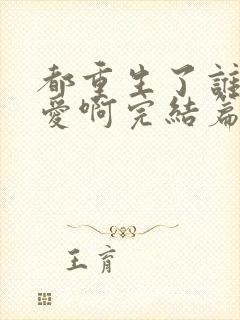 都重生了誰
愛啊完結篇
王育